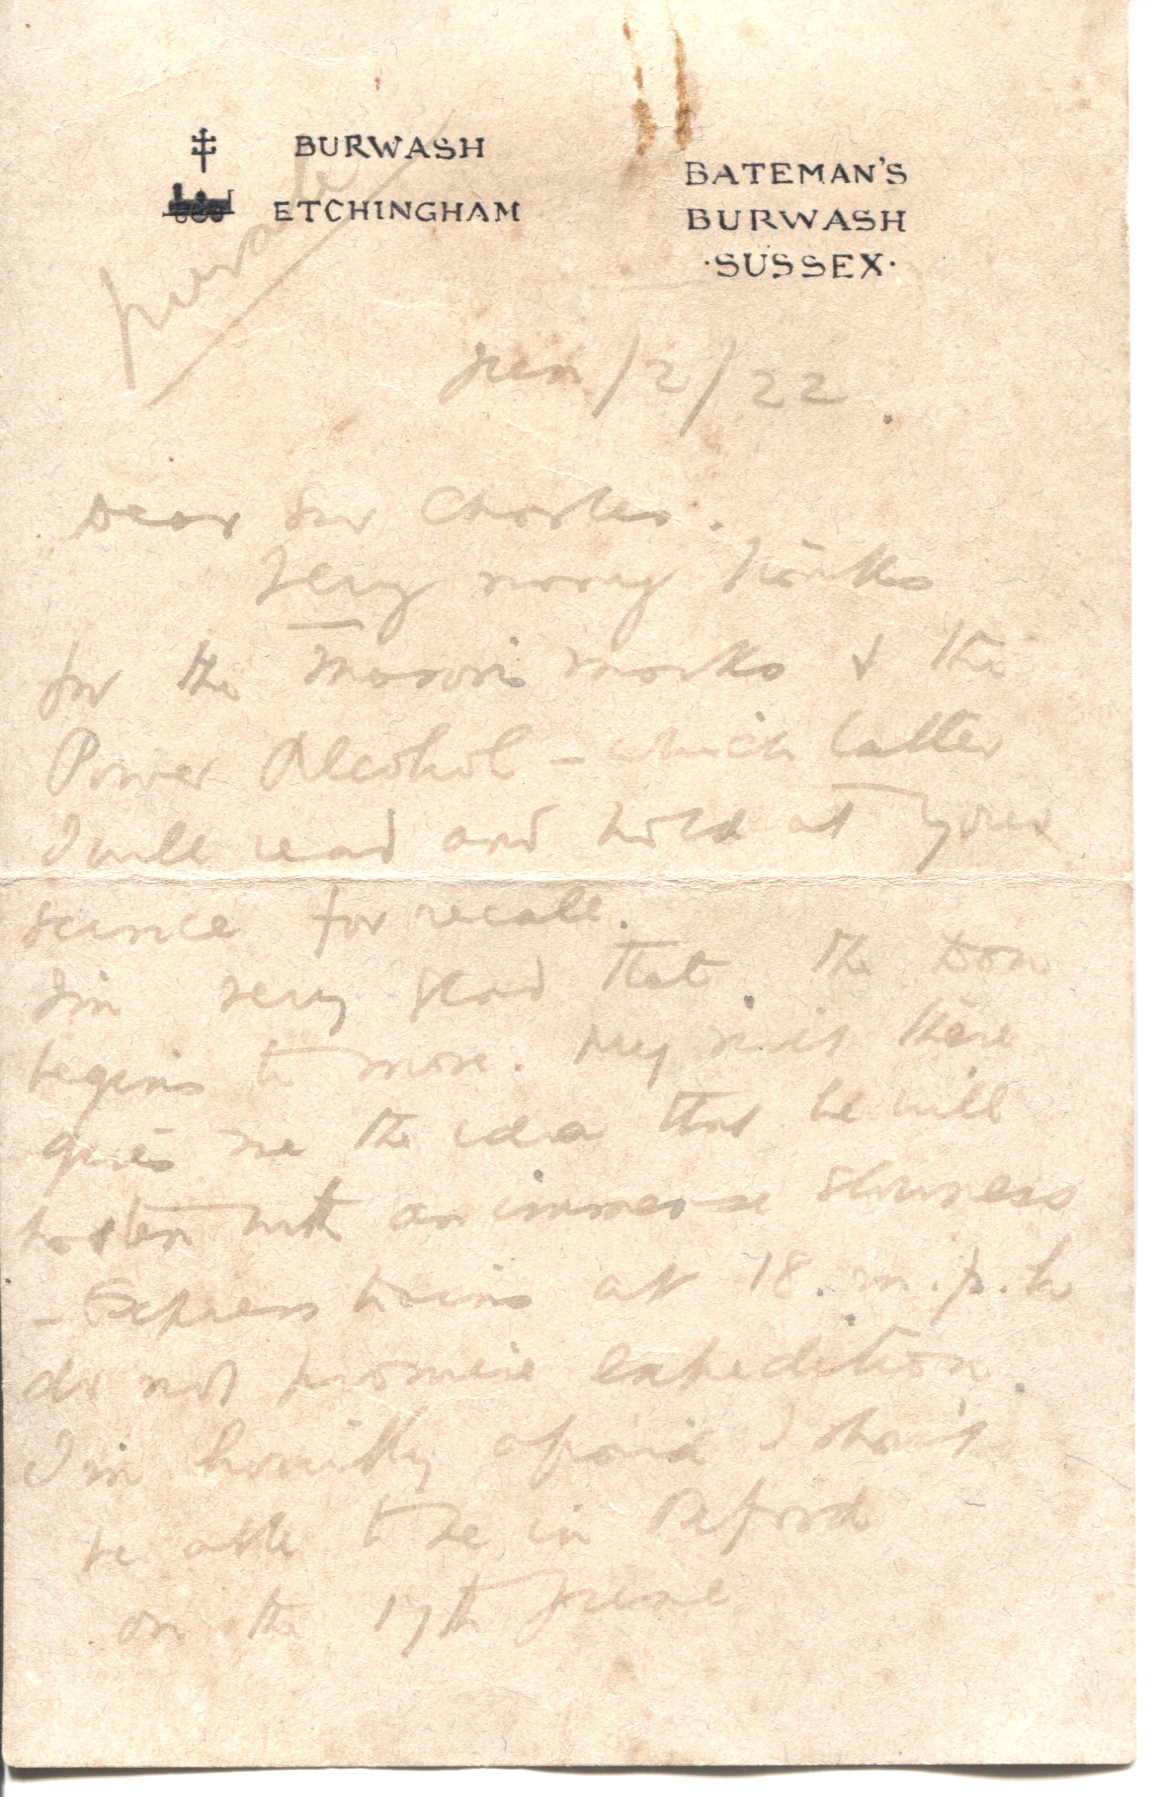 BURWASH
ETCHINGHAM
BATEMAN'S
BURWASH
·SUSSEX·
private
Jun/2/22.
Dear Sir Charles.
Very many thanks
for the Mason's marks & the
Power Alcohol - which latter
I will read and hold at your
science for recall.
I'm very glad that the Don
begins to move. My visit there
gives me the idea that he will
hasten with an immense slowness
- Express trains at 18. m.p.h
do not promise expedition.
I'm horribly afraid I shan't
be able to be in Oxford
on the 17th June